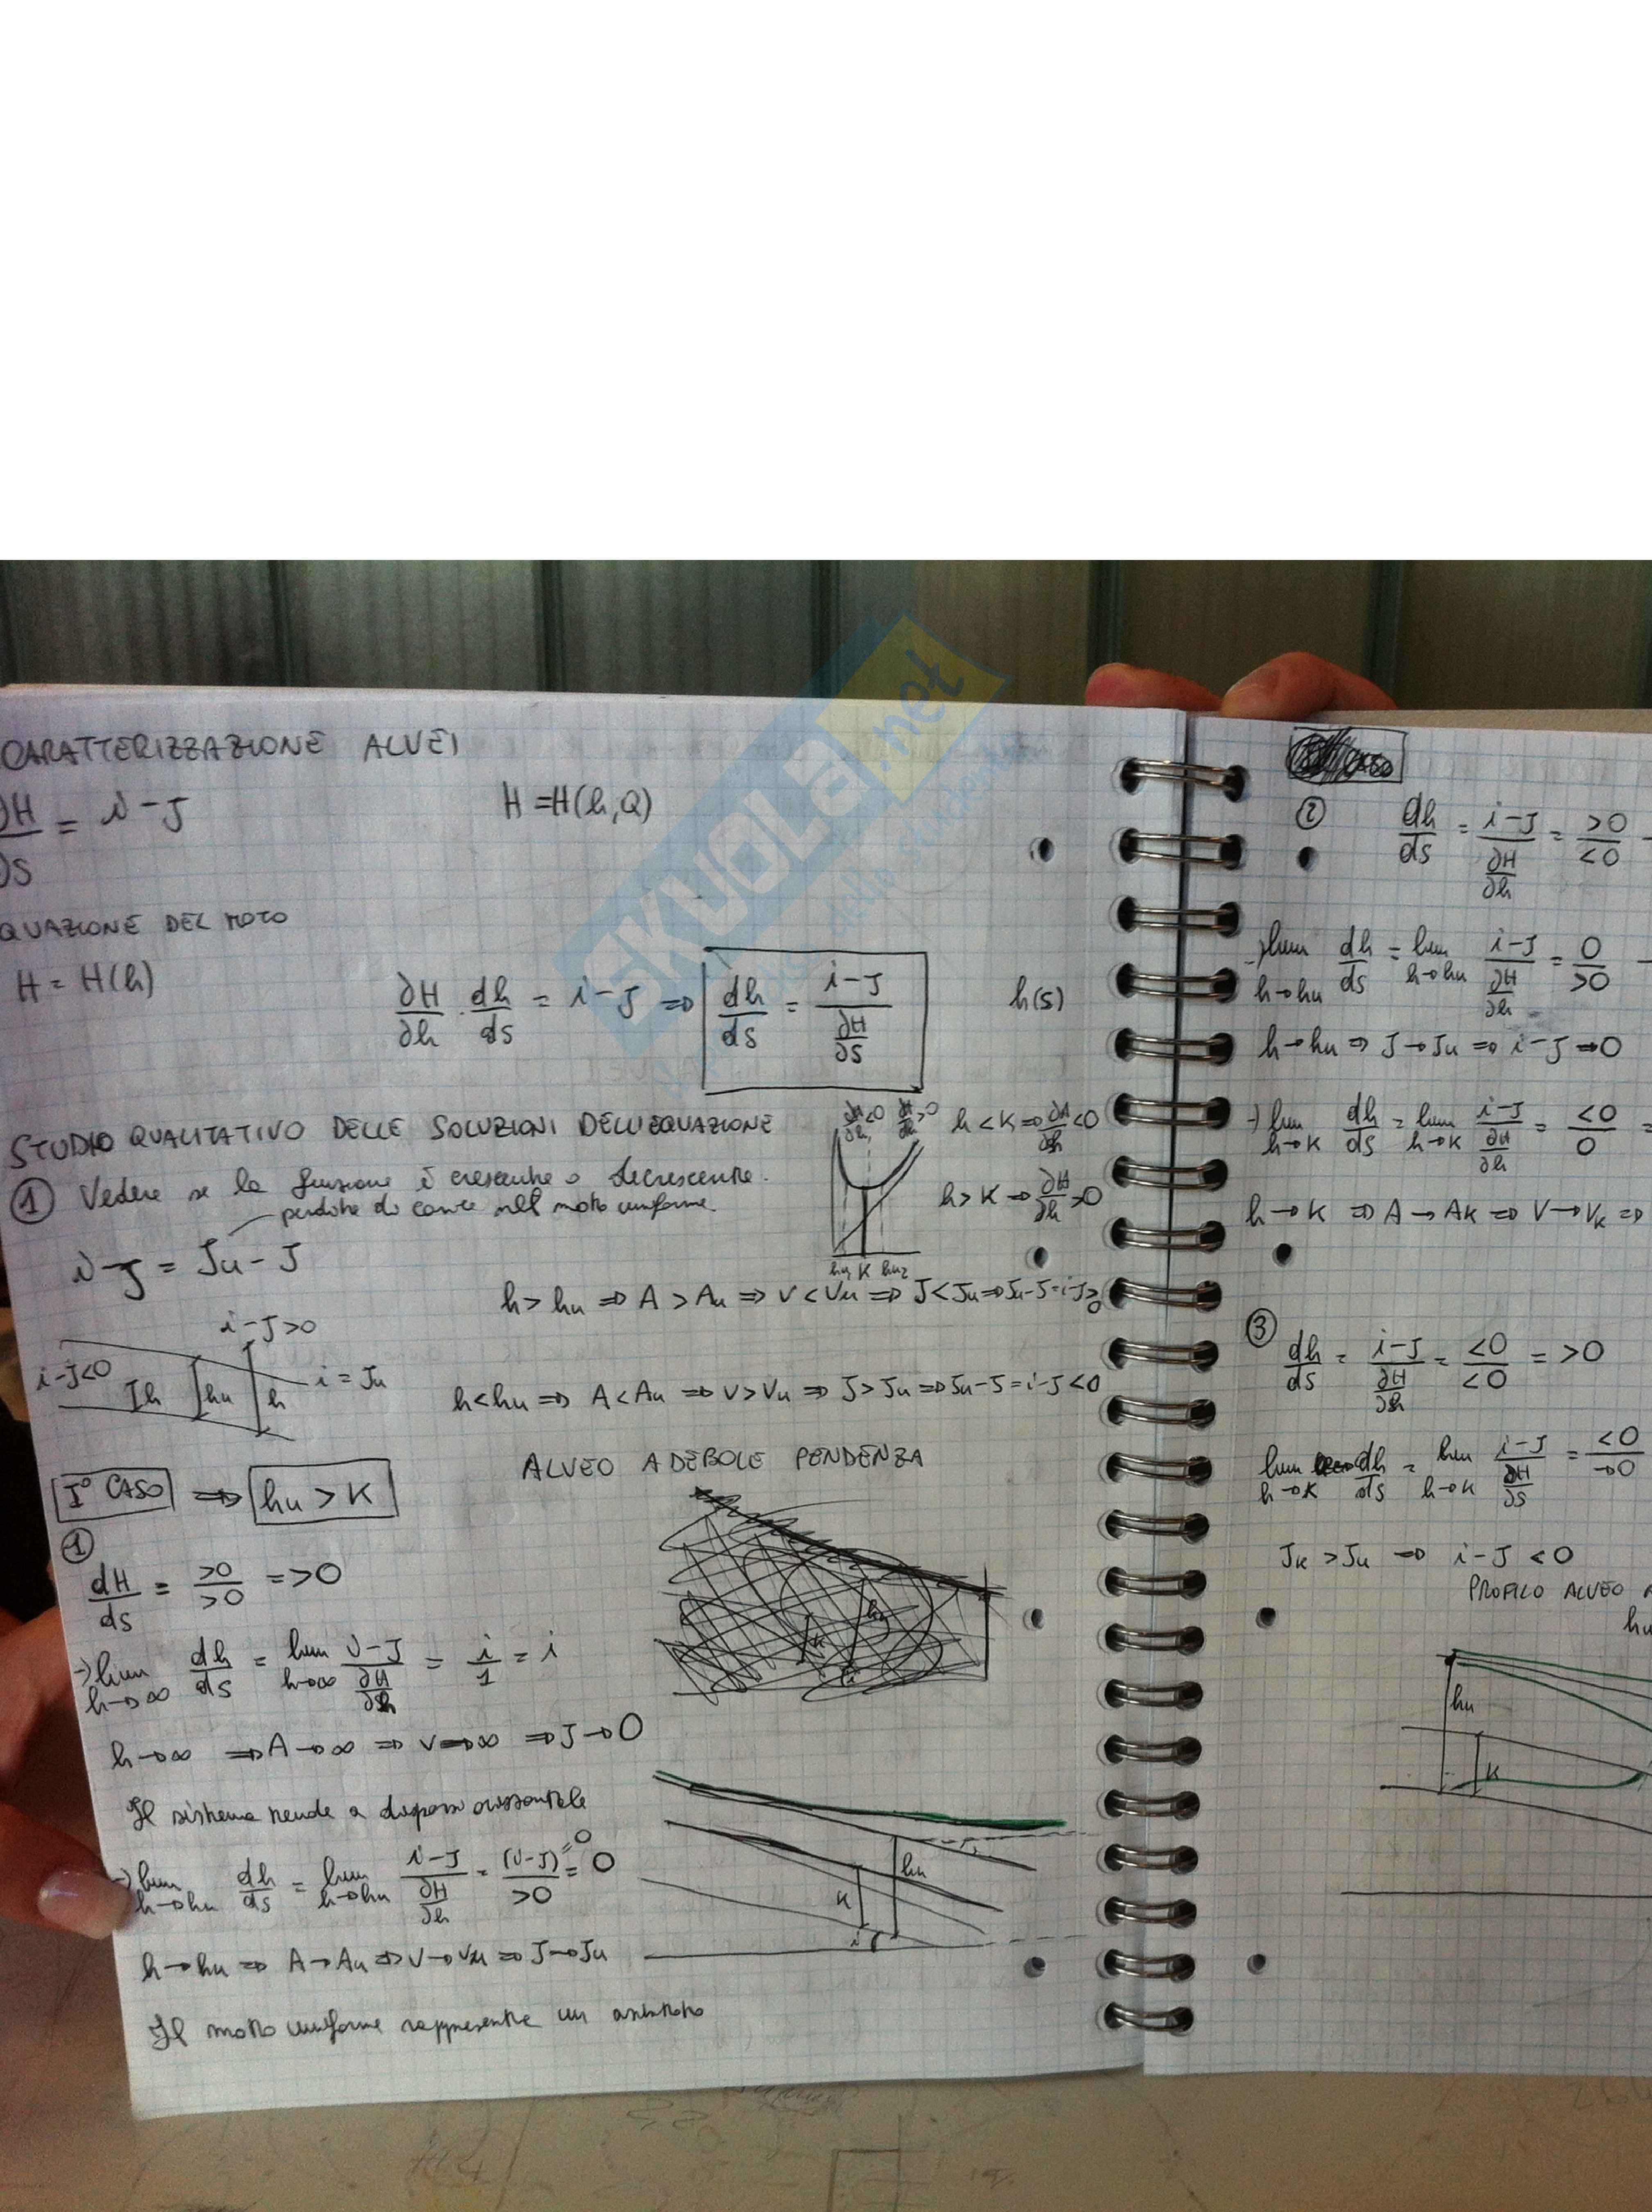 CARATTERIZZAZIONE ALVEI
∂H/∂S = i-J
H = H(h,Q)
QUAZIONE DEL MOTO
H = H(h)
∂H/∂h · dh/ds = i-J ⇒ dh/ds = (i-J)/(∂H/∂S)
h(s)
STUDIO QUALITATIVO DELLE SOLUZIONI DELL'EQUAZIONE
∂H/∂h <0 ∂H/∂h >0
h < K ⇒ ∂H/∂h <0
① Vedere se la funzione è crescente o decrescente.
perdite di carico nel moto uniforme
h > K → ∂H/∂h >0
i-J = Ju - J
hu1 K hu2
h > hu ⇒ A > Au ⇒ v < Vu ⇒ J < Ju ⇒ Ju-J = i-J > 0
i-J>0
i-J<0
h hu h i = Ju
h < hu ⇒ A < Au ⇒ v > Vu ⇒ J > Ju ⇒ Ju-J = i-J < 0
ALVEO A DEBOLE PENDENZA
I° CASO ⇒ hu > K
①
dH/ds = >0/>0 = >0
→ lim h→∞ dh/ds = lim h→∞ (i-J)/(∂H/∂h) = i/1 = i
h→∞ ⇒ A→∞ ⇒ v→∞ ⇒ J→0
Il sistema tende a disporsi orizzontale
→ lim h→hu dh/ds = lim h→hu (i-J)/(∂H/∂h) = (i-J)=0/>0 = 0
hu
K
i
h→hu ⇒ A→Au ⇒ v→vu ⇒ J→Ju
Il moto uniforme rappresenta un asintoto
②
dh/ds = (i-J)/(∂H/∂h) = >0/<0
→ lim h→hu dh/ds = lim h→hu (i-J)/(∂H/∂h) = 0/>0
h→hu ⇒ J→Ju ⇒ i-J ⇒ 0
→ lim h→K dh/ds = lim h→K (i-J)/(∂H/∂h) = <0/0 =
h→K ⇒ A→AK ⇒ V→VK ⇒
③
dh/ds = (i-J)/(∂H/∂h) = <0/<0 = >0
lim h→K dh/ds = lim h→K (i-J)/(∂H/∂S) = <0/→0
JK > Ju ⇒ i-J < 0
PROFILO ALVEO A
hu
hu
K
SKUOLA.net